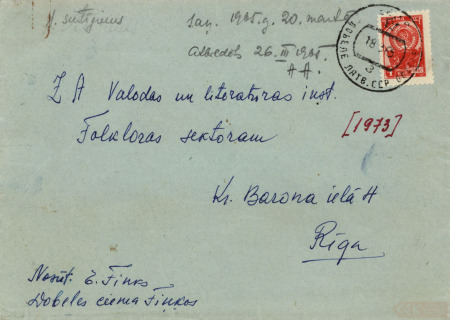 saņ. 1965. g. 20. martā
Atbildēts 26. III 1965.
A A.
Z A Valodas un literatūras inst.
Folkloras sektoram
[1973]
Kr. Barona ielā 4
Rīga
Nosūt. E. Finks
Dobeles ciema Fiņķos
ДОБЕЛЕ ЛАТВ. ССР
18
3